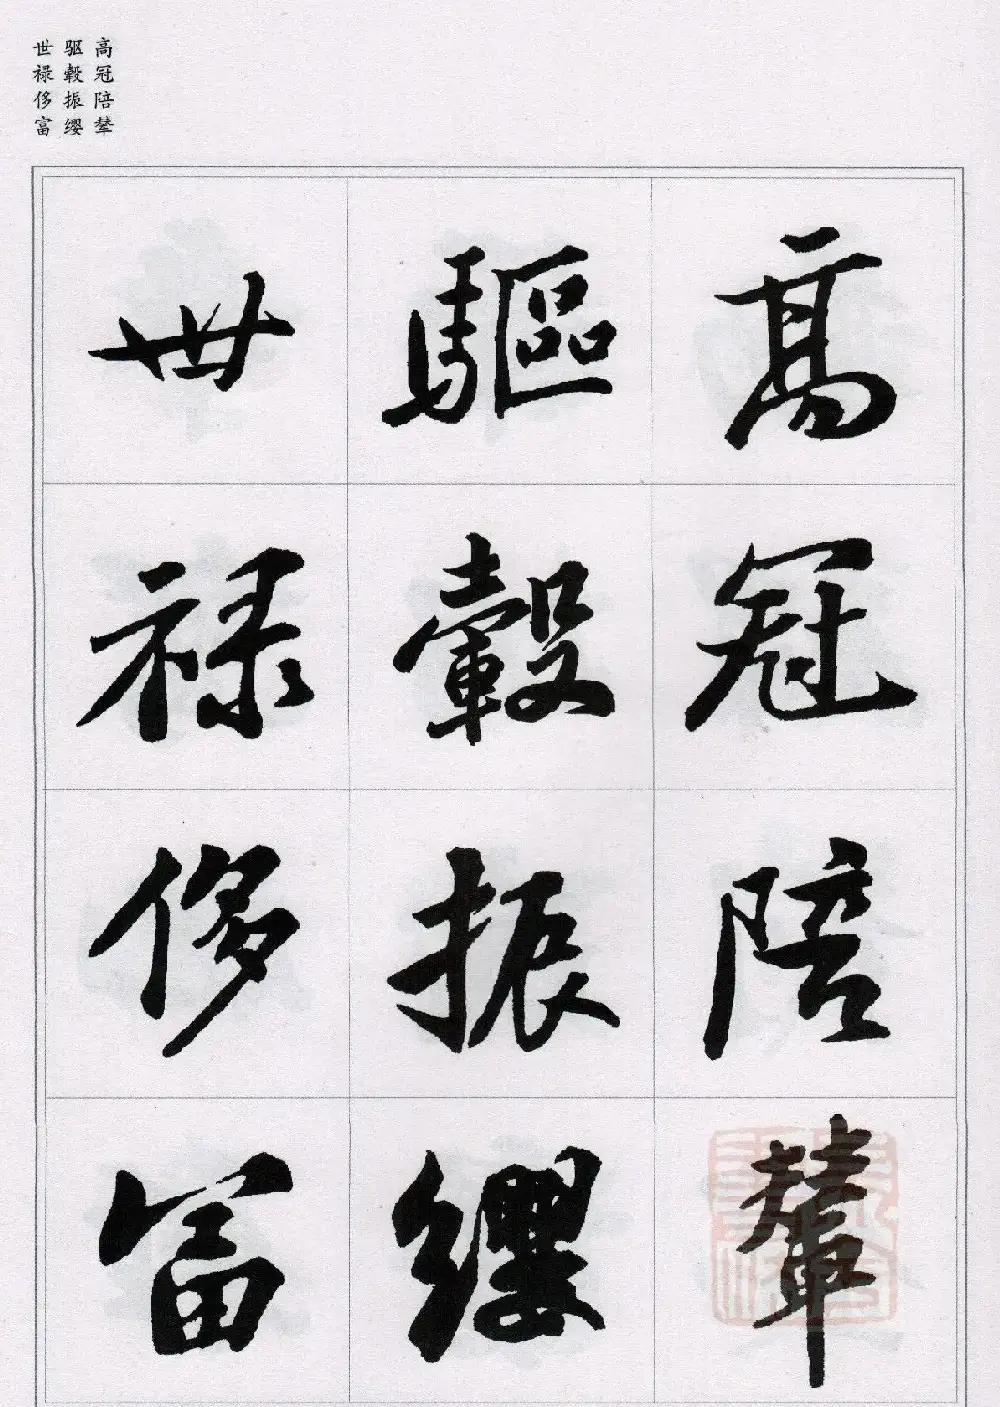 高冠陪辇
驱毂振缨
世禄侈富
高冠陪輦
驅轂振纓
世禄侈富